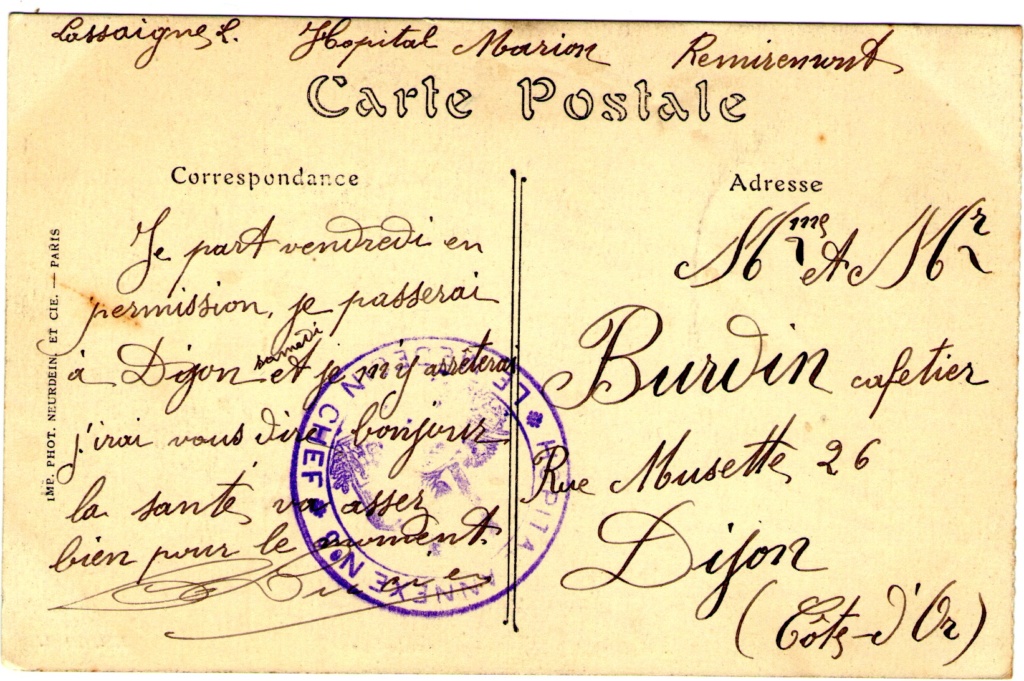 Lassaigne L. Hopital Marion Remiremont
Carte Postale
Correspondance
Je part vendredi en
permission, je passerai
samedi
à Dijon et je m'y arrêterai
j'irai vous dire bonjour
la santé va assez
bien pour le moment.
Adresse
Mme et Mr
Burdin cafetier
Rue Musette 26
Dijon
(Côte-d'Or)
IMP. PHOT. NEURDEIN. ET CIE. — PARIS
HOPITAL ANNEXE N° 8 * LE MÉDECIN CHEF *